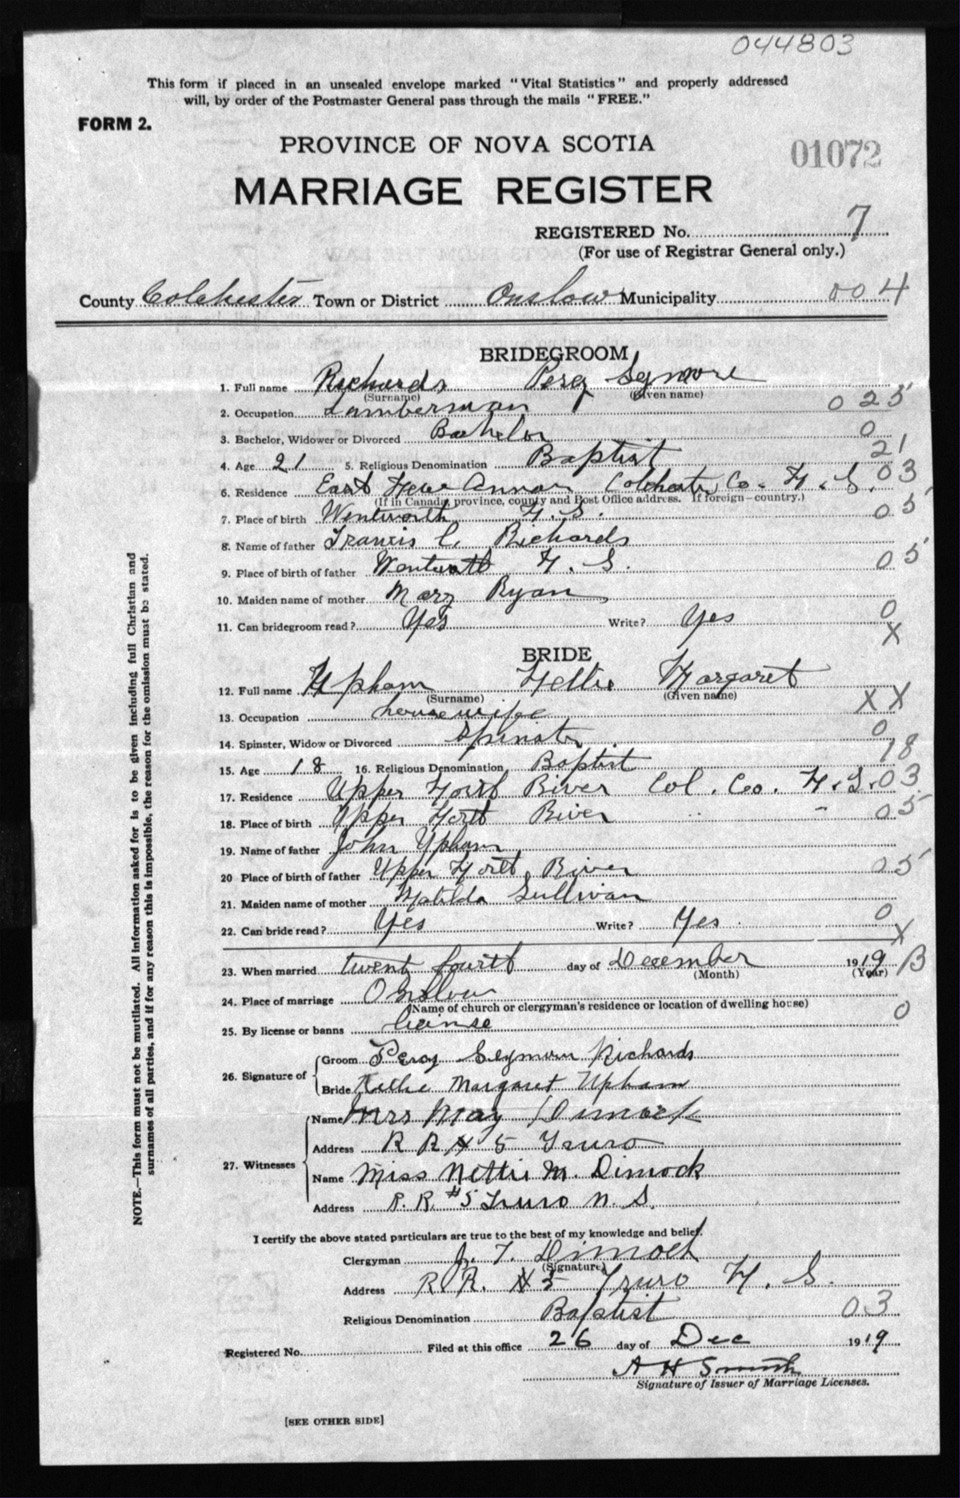 044803
This form if placed in an unsealed envelope marked "Vital Statistics" and properly addressed
will, by order of the Postmaster General pass through the mails "FREE."
FORM 2.
PROVINCE OF NOVA SCOTIA
01072
MARRIAGE REGISTER
REGISTERED No. 7
(For use of Registrar General only.)
County Colchester Town or District Onslow Municipality 004
BRIDEGROOM
1. Full name Richards Percy Seymore
(Surname) (Given name)
2. Occupation Lumberman 025
3. Bachelor, Widower or Divorced Bachelor 0
4. Age 21 5. Religious Denomination Baptist 21
6. Residence East New Annan Colchester Co. N. S. 03
(If in Canada, province, county and Post Office address. If foreign—country.)
7. Place of birth Wentworth N. S. 05
8. Name of father Francis C. Richards
9. Place of birth of father Wentworth N. S. 05
10. Maiden name of mother Mary Ryan
11. Can bridegroom read? Yes Write? Yes 0
X
BRIDE
12. Full name Upham Nettie Margaret
(Surname) (Given name)
13. Occupation housewife XX
14. Spinster, Widow or Divorced Spinster 0
15. Age 18 16. Religious Denomination Baptist 18
17. Residence Upper North River Col. Co. N. S. 03
18. Place of birth Upper North River " " 05
19. Name of father John Upham
20 Place of birth of father Upper North River 05
21. Maiden name of mother Matilda Sullivan
22. Can bride read? Yes Write? Yes. 0
X
23. When married twenty fourth day of December 1919 B
(Month) (Year)
24. Place of marriage Onslow
(Name of church or clergyman's residence or location of dwelling house)
25. By license or banns license 0
26. Signature of
Groom Percy Seymour Richards
Bride Nellie Margaret Upham
27. Witnesses
Name Mrs May Dimock
Address R R # 5 Truro
Name Miss Nettie M. Dimock
Address R. R. #5 Truro N. S.
I certify the above stated particulars are true to the best of my knowledge and belief.
Clergyman J. T. Dimock
(Signature)
Address R. R. # 5 Truro N. S.
Religious Denomination Baptist 03
Registered No. Filed at this office 26 day of Dec 1919
A H Smith
Signature of Issuer of Marriage Licenses.
[SEE OTHER SIDE]
NOTE.—This form must not be mutilated. All information asked for is to be given including full Christian and
surnames of all parties, and if for any reason this is impossible, the reason for the omission must be stated.